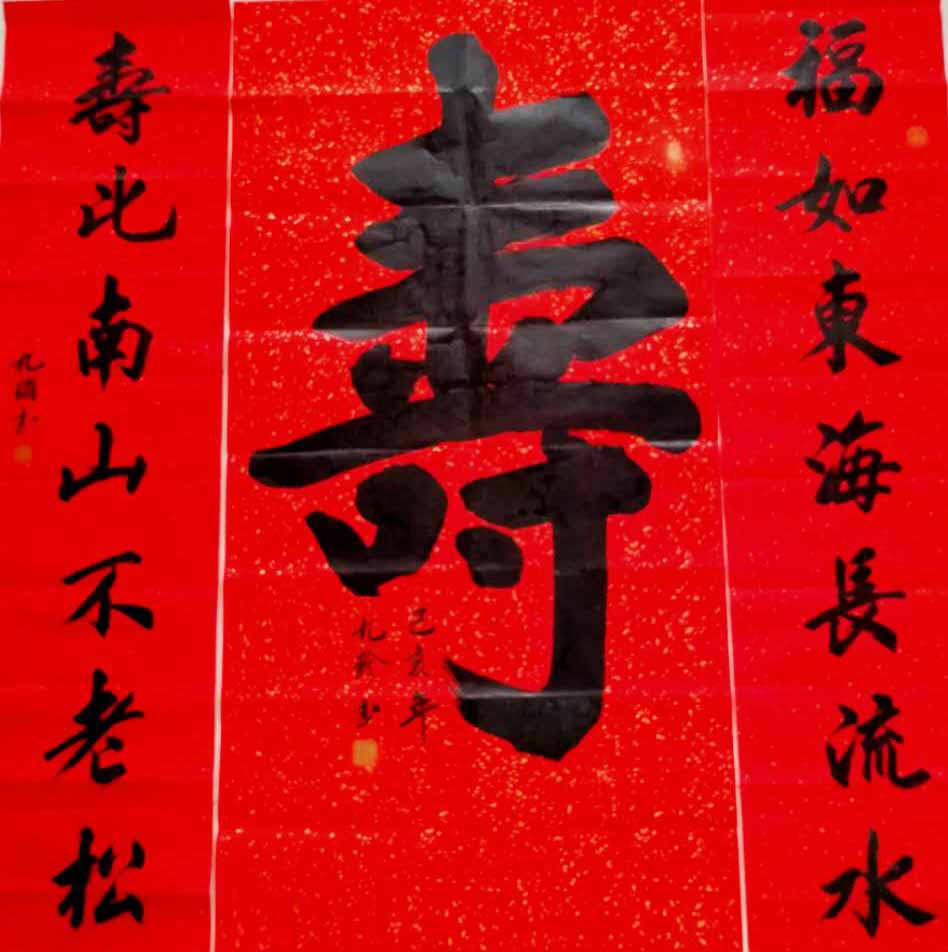 福如東海長流水
壽
己亥年
壽比南山不老松